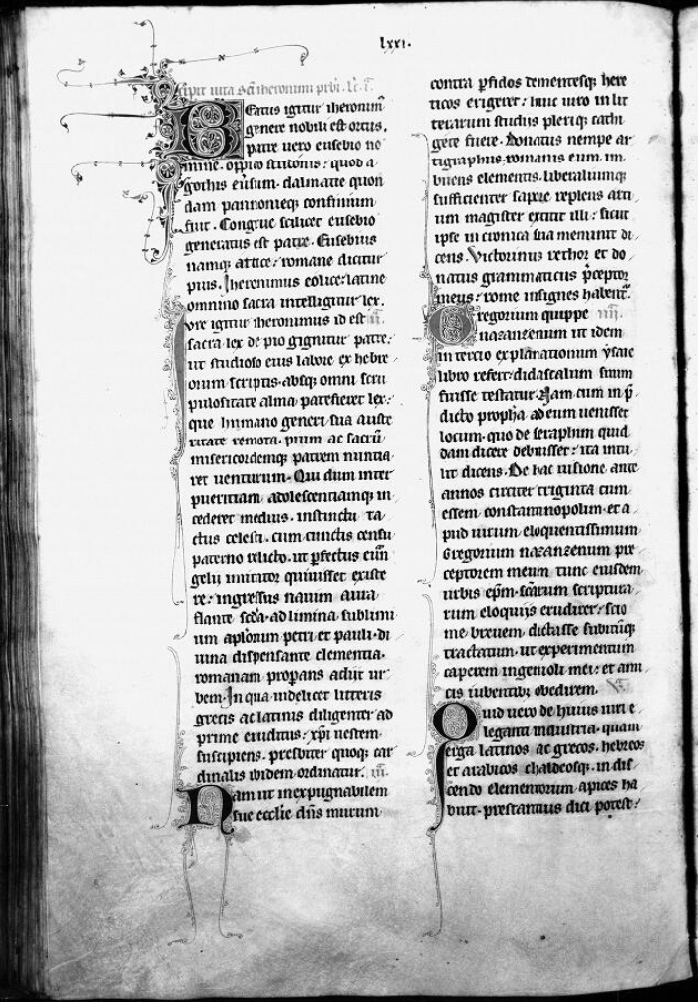 lxxi.
cipit uita sci iheronimi prbi. lc. i.
Beatus igitur iheronim
genere nobili est ortus.
patre uero eusebio no
mine. oppido stridonis: quod a
gothis euersum. dalmatie quon
dam pannonieq; confinium
fuit. Congrue scilicet eusebio
generatus est patre. Eusebius
namq; attice: romane dicitur
pius. Iheronimus eolice: latine
omnino sacra intelligitur lex.
Iure igitur iheronimus id est ii.
sacra lex de pio gignitur patre:
ut studioso eius labore ex hebre
orum scriptis. absq; omni scru
pulositate alma patefieret lex:
que humano generi sua auste
ritate remota. pium ac sacrū
misericordemq; patrem nuntia
ret uenturum. Qui dum inter
pueritiam adolescentiamq; in
cederet medius. instinctu ta
ctus celesti. cum cunctis censu
paterno relicto. ut pfectus euan
gelii imitator quiuisset existe
re: ingressus nauim aura
flante scda. ad limina sublimi
um aplorum petri et pauli. di
uina dispensante clementia.
romanam properans adijt ur
bem. In qua uidelicet litteris
grecis ac latinis diligenter ad
prime eruditus: xpi uestem
suscipiens. presbiter quoq; car
dinalis ibidem ordinatur. iii.
Nam ut inexpugnabilem
sue ecclie dns murum
contra pfidos dementesq; here
ticos erigeret: huic uiro in lit
terarum studijs pleriq; cathi
gete fuere. Donatus nempe ar
tigraphus. romanis eum im
buens elementis. liberaliumq;
sufficienter sapere replens arti
um magister extitit illi: sicut
ipse in cronica sua meminit di
cens. Victorinus rethor et do
natus grammaticus pceptor
meus: rome insignes habent.
Gregorium quippe iiii.
nazanzenum ut idem
in tercio explanationum ysaie
libro refert: didascalum suum
fuisse testatur. Nam cum in p
dicto propha ad eum uenisset
locum. quo de seraphim quid
dam dicere debuisset: ita intu
lit dicens. De hac uisione ante
annos circiter triginta cum
essem constantinopolim. et a
pud uirum eloquentissimum
Gregorium nazanzenum pre
ceptorem meum tunc eiusdem
urbis epm. scarum scriptura
rum eloquijs erudirer: scio
me breuem dictasse subitūq;
tractatum. ut experimentum
caperem ingenioli mei: et ami
cis iubentib; obedirem. v.
Quid uero de huius uiri e
leganti industria. quam
erga latinos ac grecos. hebreos
et arabicos chaldeosq;. in dis
cendo elementorum apices ha
buit. prestantius dici potest: